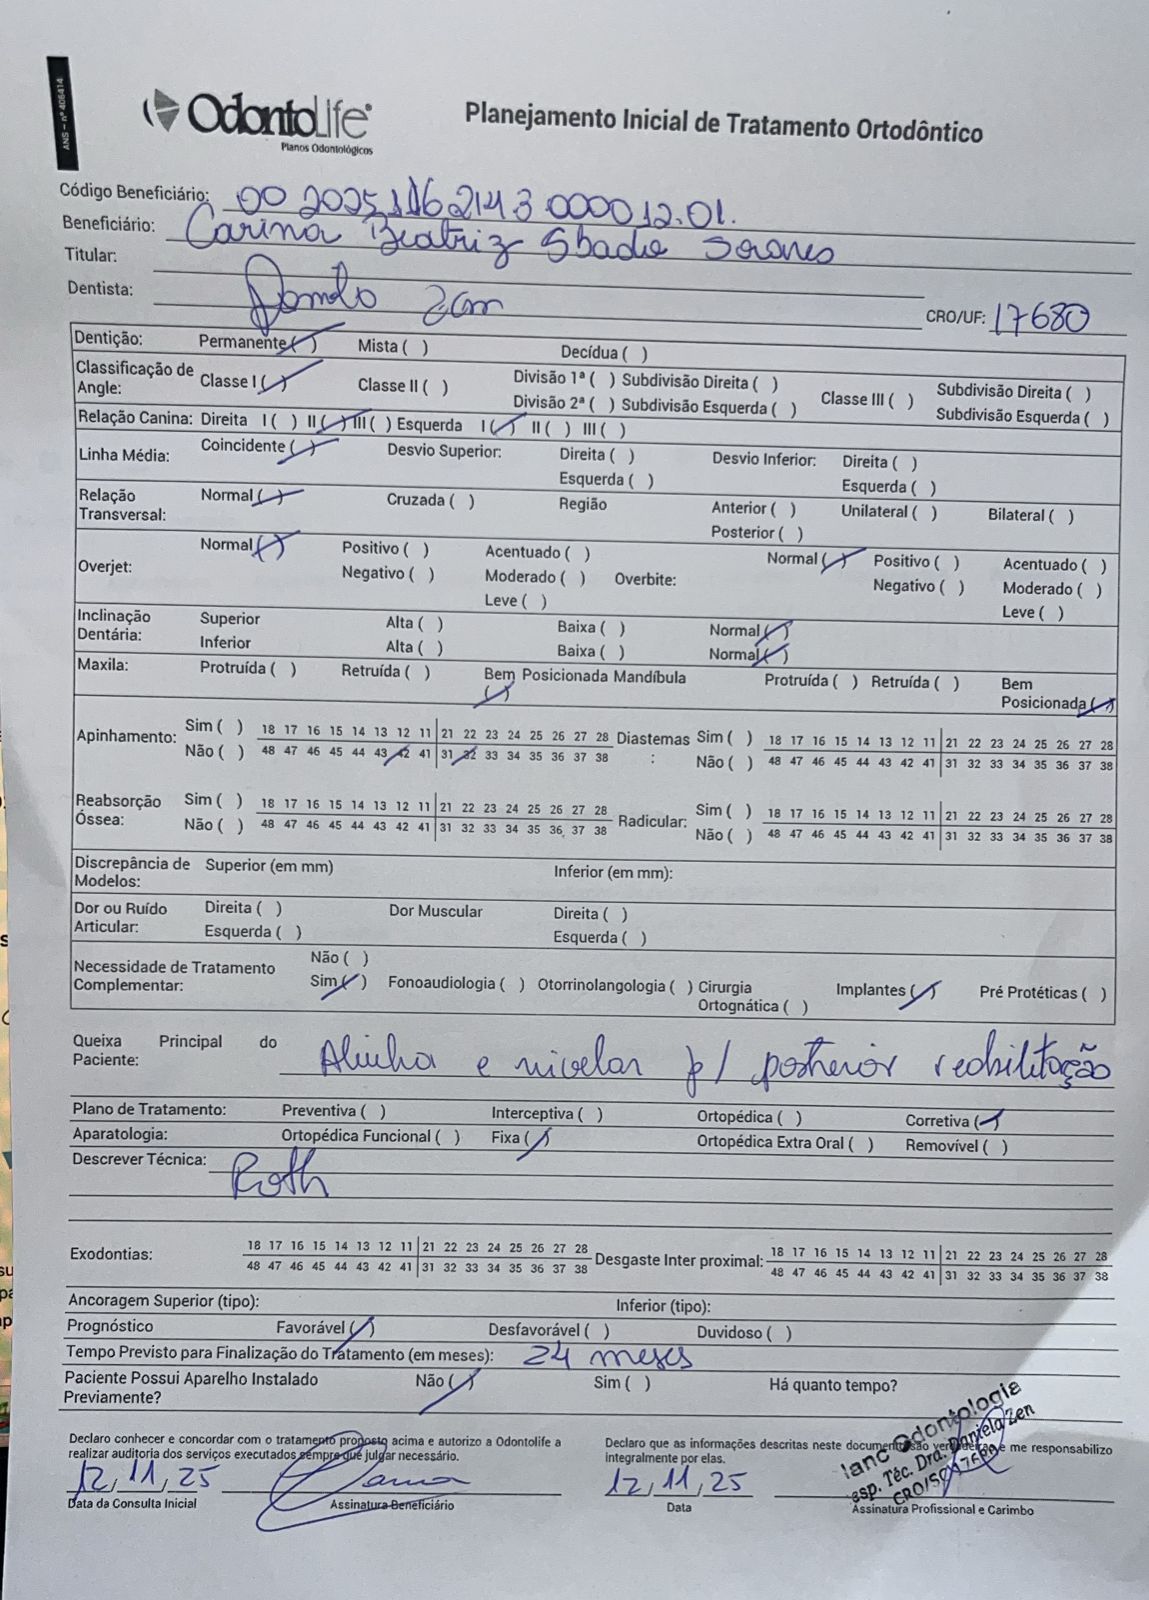 ANS – nº 406414
OdontoLife®
Planos Odontológicos
Planejamento Inicial de Tratamento Ortodôntico
Código Beneficiário: 00 202511621430000 12.01.
Beneficiário: Carina Beatriz Soares
Titular:
Dentista: Zen CRO/UF: 17680
Dentição: Permanente (✓) Mista ( ) Decídua ( )
Classificação de Angle: Classe I (✓) Classe II ( ) Divisão 1ª ( ) Subdivisão Direita ( ) Classe III ( ) Subdivisão Direita ( )
Divisão 2ª ( ) Subdivisão Esquerda ( ) Subdivisão Esquerda ( )
Relação Canina: Direita I ( ) II (✓) III ( ) Esquerda I (✓) II ( ) III ( )
Linha Média: Coincidente (✓) Desvio Superior: Direita ( ) Desvio Inferior: Direita ( )
Esquerda ( ) Esquerda ( )
Relação Transversal: Normal (✓) Cruzada ( ) Região Anterior ( ) Unilateral ( ) Bilateral ( )
Posterior ( )
Overjet: Normal (✓) Positivo ( ) Acentuado ( ) Overbite: Normal (✓) Positivo ( ) Acentuado ( )
Negativo ( ) Moderado ( ) Negativo ( ) Moderado ( )
Leve ( ) Leve ( )
Inclinação Dentária: Superior Alta ( ) Baixa ( ) Normal (✓)
Inferior Alta ( ) Baixa ( ) Normal (✓)
Maxila: Protruída ( ) Retruída ( ) Bem Posicionada (✓) Mandíbula Protruída ( ) Retruída ( ) Bem Posicionada (✓)
Apinhamento: Sim ( ) 18 17 16 15 14 13 12 11 21 22 23 24 25 26 27 28 Diastemas: Sim ( ) 18 17 16 15 14 13 12 11 21 22 23 24 25 26 27 28
Não ( ) 48 47 46 45 44 43 42 41 31 32 33 34 35 36 37 38 Não ( ) 48 47 46 45 44 43 42 41 31 32 33 34 35 36 37 38
Reabsorção Óssea: Sim ( ) 18 17 16 15 14 13 12 11 21 22 23 24 25 26 27 28 Radicular: Sim ( ) 18 17 16 15 14 13 12 11 21 22 23 24 25 26 27 28
Não ( ) 48 47 46 45 44 43 42 41 31 32 33 34 35 36 37 38 Não ( ) 48 47 46 45 44 43 42 41 31 32 33 34 35 36 37 38
Discrepância de Modelos: Superior (em mm) Inferior (em mm):
Dor ou Ruído Articular: Direita ( ) Dor Muscular Direita ( )
Esquerda ( ) Esquerda ( )
Necessidade de Tratamento Complementar: Não ( )
Sim (✓) Fonoaudiologia ( ) Otorrinolangologia ( ) Cirurgia Ortognática ( ) Implantes (✓) Pré Protéticas ( )
Queixa Principal do Paciente: Alinha e nivelar p/ posterior reabilitação
Plano de Tratamento: Preventiva ( ) Interceptiva ( ) Ortopédica ( ) Corretiva (✓)
Aparatologia: Ortopédica Funcional ( ) Fixa (✓) Ortopédica Extra Oral ( ) Removível ( )
Descrever Técnica: Roth
Exodontias: 18 17 16 15 14 13 12 11 21 22 23 24 25 26 27 28 Desgaste Inter proximal: 18 17 16 15 14 13 12 11 21 22 23 24 25 26 27 28
48 47 46 45 44 43 42 41 31 32 33 34 35 36 37 38 48 47 46 45 44 43 42 41 31 32 33 34 35 36 37 38
Ancoragem Superior (tipo): Inferior (tipo):
Prognóstico Favorável (✓) Desfavorável ( ) Duvidoso ( )
Tempo Previsto para Finalização do Tratamento (em meses): 24 meses
Paciente Possui Aparelho Instalado Previamente? Não (✓) Sim ( ) Há quanto tempo?
Declaro conhecer e concordar com o tratamento proposto acima e autorizo a Odontolife a
realizar auditoria dos serviços executados sempre que julgar necessário.
12, 11, 25
Data da Consulta Inicial Assinatura Beneficiário
Declaro que as informações descritas neste documento são verdadeiras e me responsabilizo
integralmente por elas.
12, 11, 25
Data Assinatura Profissional e Carimbo
Ianc Odontologia
esp. Téc. Dra. Daniela Zen
CRO/SC 17680